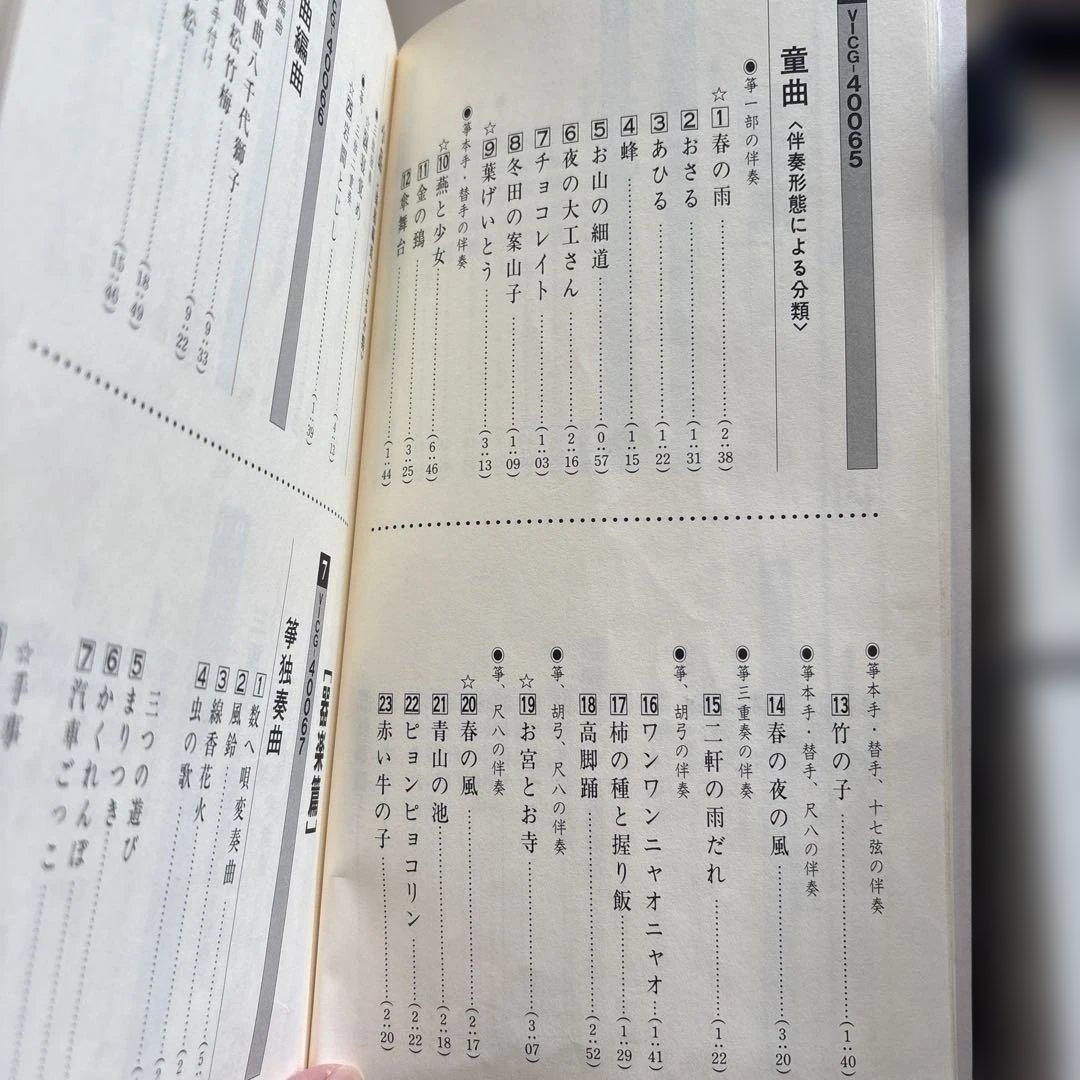 VICG-40065
童曲〈伴奏形態による分類〉
●箏一部の伴奏
☆1春の雨(2:38)
2おさる(1:31)
3あひる(1:22)
4蜂(1:15)
5お山の細道(0:57)
6夜の大工さん(2:16)
7チョコレイト(1:03)
8冬田の案山子(1:09)
☆9葉げいとう(3:13)
●箏本手・替手の伴奏
☆10燕と少女(6:46)
11金の鵄(3:25)
12傘舞台(1:44)
●箏本手・替手、十七弦の伴奏
13竹の子(1:40)
●箏本手・替手、尺八の伴奏
14春の夜の風(3:20)
●箏三重奏の伴奏
15二軒の雨だれ(1:22)
●箏、胡弓の伴奏
16ワンワンニャオニャオ(1:41)
17柿の種と握り飯(1:29)
18高脚踊(2:52)
●箏、胡弓、尺八の伴奏
☆19お宮とお寺(3:07)
●箏、尺八の伴奏
☆20春の風(2:17)
21青山の池(2:18)
22ピョンピョコリン(2:22)
23赤い牛の子(2:20)
(4:13)
(1:39)
40066
曲編曲
編曲八千代獅子(9:33)
曲松竹梅(9:22)
手付け
松(18:49)
(15:46)
[器楽篇]
7 VICG-40067
箏独奏曲
1数へ唄変奏曲
2風鈴
3線香花火
4虫の歌
三つの遊び
5まりつき
6かくれんぼ
7汽車ごっこ
☆手事